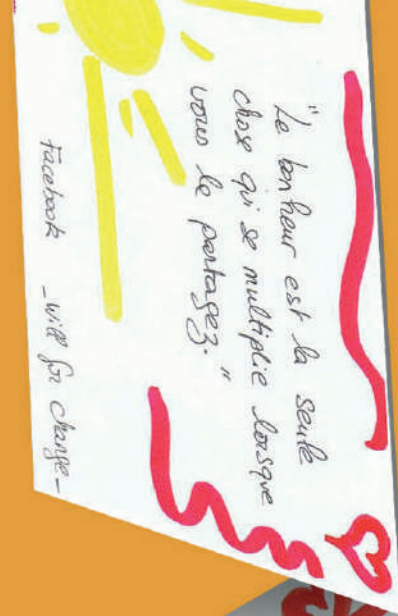 "Le bonheur est la seule
chose qui se multiplie lorsque
vous le partagez."
Facebook - will for change -